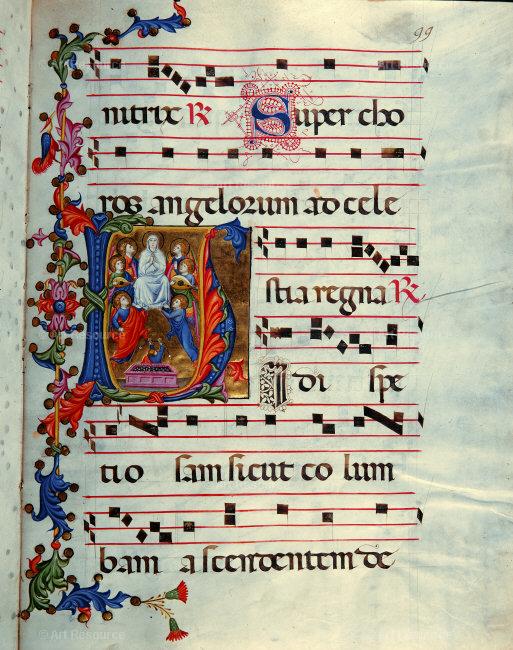 99
nitrix ℟ Super cho
ros angelorum ad cele
stia regna ℟
V I di spe
tio sam sicut co lum
bam ascendentem de
© Art Resource